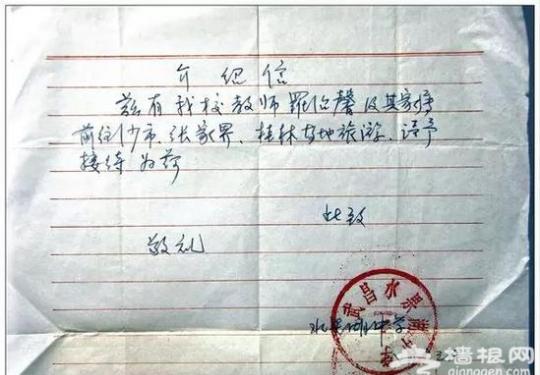 介绍信
兹有我校教师罗伯馨及其家停
前往沙市、张家界、桂林等地旅游,请予
接待为荷
此致
敬礼
水果湖中学
武昌水果湖
墙根网
qianggen.com